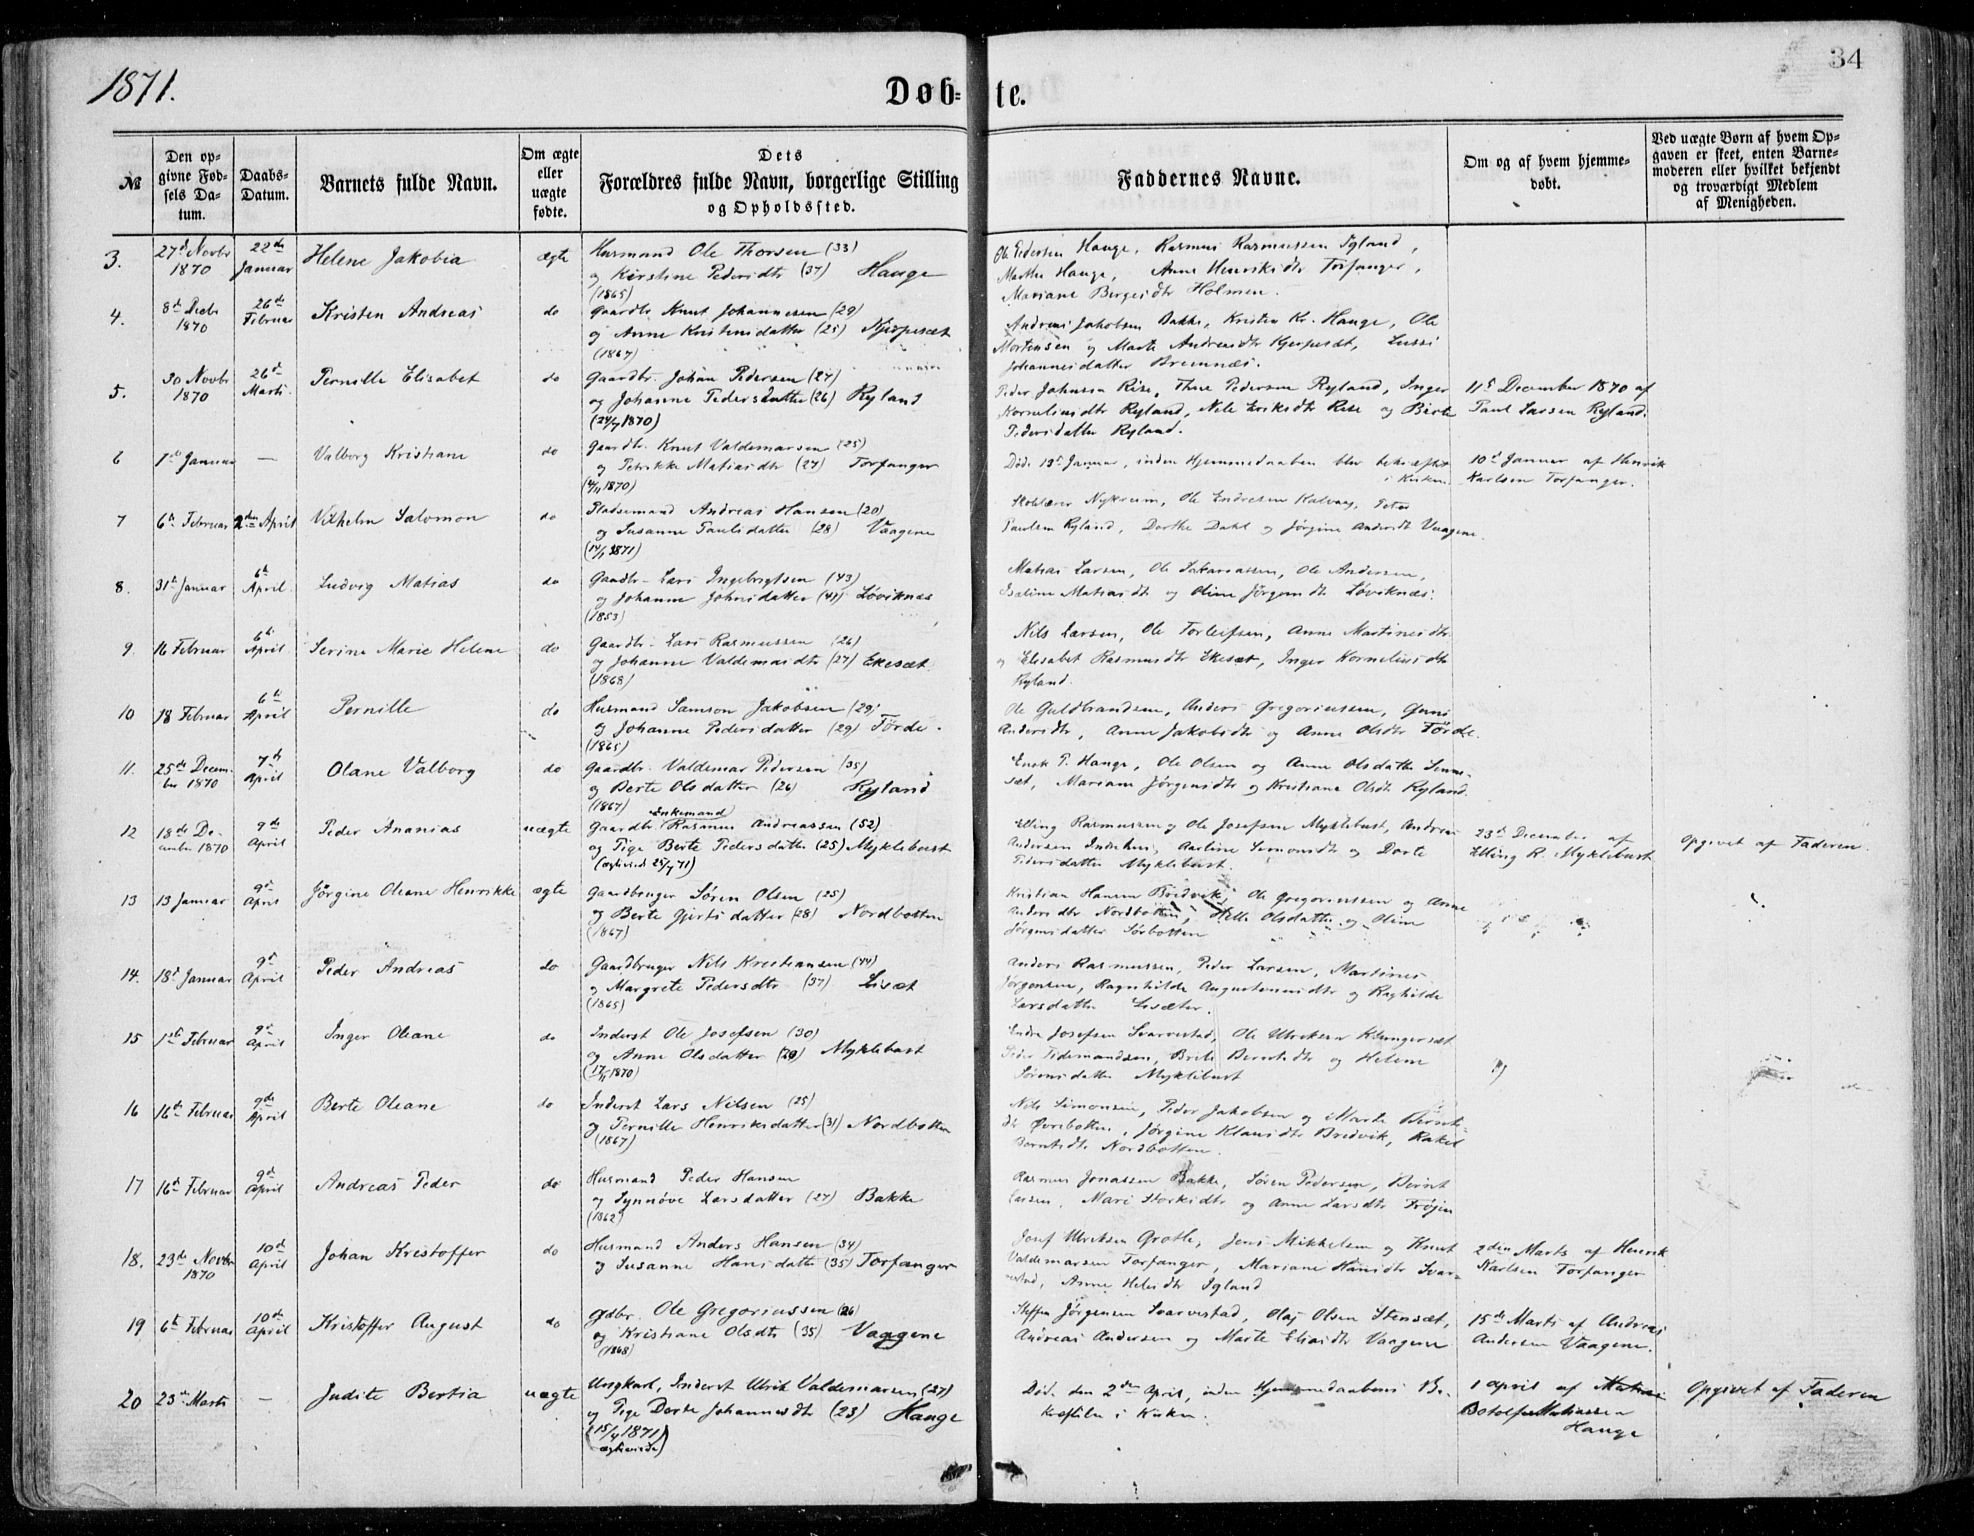 1871.
Døb-te.
34
№
Den op-
givne Fød-
sels Da-
tum.
Daabs-
Datum.
Barnets fulde Navn.
Om ægte
eller
uægte
fødte.
Dets
Forældres fulde Navn, borgerlige Stilling
og Opholdssted.
Faddernes Navne.
Om og af hvem hjemme-
døbt.
Ved uægte Børn af hvem Op-
gaven er skeet, enten Barne-
moderen eller hvilket bekjendt
og troværdigt Medlem
af Menigheden.
3. 27d Novbr 1870 22de Januar Helene Jakobia ægte
Husmand Ole Thorsen (33)
og Kirstine Pedersdtr (37) Hauge
(1865)
Ole Pedersen Hauge, Rasmus Rasmussen Igland,
Marthe Hauge, Anne Henriksdtr Torfanger,
Mariane Børgesdtr Holmen.
4. 8de Decbr 1870 26de Februar Kristen Andreas do
Gaardbr. Knut Johannesen (29)
og Anne Kristensdatter (25) Kjerpesæt
(1867)
Andreas Jakobsen Bakke, Kristen Kr. Hauge, Ole
Mortensen og Marte Andreasdtr Kjerpesæt, Lussi
Johannesdatter Bremnæs.
5. 30 Novbr 1870 26de Marts Pernille Elisabet do
Gaardbr. Johan Pedersen (27)
og Johanne Pedersdatter (26) Ryland
(24/7 1870)
Peder Johnsen Rise, Thue Pedersen Ryland, Inger
Korneliusdtr Ryland, Nele Eriksdtr Rise og Berte
Pedersdatter Ryland.
11te December 1870 af
Paul Larsen Ryland.
6 1ste Januar — Valborg Kristiane do
Gaardbr. Knut Valdemarsen (25)
og Petrikke Matiasdtr (27) Torfanger
(4/11 1870)
Døde 13de Januar, inden Hjemmedaaben blev bekræftet
i Kirken.
10d Januar af Henrik
Karlsen Torfanger.
7 6te Februar 2den April Vilhelm Salomon do
Pladsemand Andreas Hansen (20)
og Susanne Paulsdatter (28) Vaagene
(14/1 1871)
Skolelærer Nykrem, Ole Endresen Kalvaag, Peter
Paulsen Ryland, Dorthe Dahl og Jørgine Andersdtr Vaagene.
8. 31te Januar 6te April Ludvig Matias do
Gaardbr. Lars Ingebrigtsen (43)
og Johanne Johnsdatter (47) Løviknæs
(1853)
Matias Larsen, Ole Sakariassen, Ole Andersen,
Iseline Matiasdtr og Oline Jørgensdtr Løviknæs.
9. 16 Februar 6te April Serine Marie Helene do
Gaardbr. Lars Rasmussen (26)
og Johanne Valdemarsdtr (27) Ekesæt
(1868)
Nils Larsen, Ole Torleifsen, Anne Martinusdtr
og Elisabet Rasmusdtr Ekesæt, Inger Korneliusdtr
Ryland.
10 18 Februar 6te April Pernille do
Husmand Samson Jakobsen (29)
og Johanne Pedersdatter (29) Førde.
(1865)
Ole Guldbrandsen, Anders Gregoriussen, Guni
Andersdtr, Anne Jakobsdtr og Anne Olsdtr Førde.
11. 25de Decem-
ber 1870 7de April Olane Valborg do
Gaardbr. Valdemar Pedersen (35)
og Berte Olsdatter (26) Ryland
(1867)
P. Hauge, Ole Olsen og Anne Olsdatter
sæt, Mariane Jørgensdtr og Kristiane Olsdtr Ryland.
12 18de De-
cember 1870 9de April Peder Ananias uægte
Enkemand
Gaardbr. Rasmus Andreassen (52)
og Pige Berte Pedersdatter (25) Myklebust
(ægteviede 23/4 71)
Elling Rasmussen og Ole Josefsen Myklebust, Andreas
Andersen Indrehus, Karline Simonsdtr og Dorte
Pedersdatter Myklebust.
23de December af
Elling R. Myklebust
Opgivet af Faderen.
13 13 Januar 9de April Jørgine Oleane Henrikke ægte
Gaardbruger Søren Olsen (25)
og Berte Gjertsdatter (28) Nordbotten
(1867)
Kristian Hansen Bredvik, Ole Gregoriussen og Anne
Andersdtr Nordbotten, Olsdatter og Oline
Jørgensdatter Sørbotten
14. 18de Januar 9de April Peder Andreas do
Gaardbruger Nils Kristiansen (44)
og Margrete Pedersdtr (37) Lisæt
(1865)
Anders Rasmussen, Peder Larsen, Martines
Jørgensen, Ragnhilde Augustinusdtr og Raghilde
Larsdatter Lisæter.
15 1ste Februar 9de April Inger Oleane do
Inderst Ole Josefsen (30)
og Anne Olsdatter (20) Myklebust
(17/11 1870)
Endre Josefsen Svarvestad, Ole Ulriksen Klungersæt
Peder Tidemandsen, Brite Berntsdtr og Helene
Sørensdatter Myklebust
16 16de Februar 9de April Berte Oleane do
Inderst Lars Nilsen (25)
og Pernille Henriksdatter (31) Nordbotten
(1867)
Nils Simonsen, Peder Jakobsen og Marte Bernts-
dtr Øvrebotten, Jørgine Klausdtr Bredvik, Rakel
Berntsdtr Nordbotten.
17 16de Februar 9de April Andreas Peder do
Husmand Peder Hansen
og Synnøve Larsdatter (27) Bakke
(1862)
Rasmus Jonassen Bakke, Søren Pedersen, Bernt
Larsen, Mari Storksdtr og Anne Larsdtr Frøjen
18. 23de Novbr 1870 10de April Johan Kristoffer do
Husmand Anders Hansen (34)
og Susanne Hansdatter (35) Torfanger
Josef Ulriksen Grotle, Jens Mikkelsen og Knut
Valdemarsen Torfanger, Mariane Hansdtr Svar-
vestad, Anne Helesdtr Igland
2den Marts af Henrik
Karlsen Torfanger
19 6te Februar 10de April Kristoffer August do
Gdbr. Ole Gregoriussen (26)
og Kristiane Olsdtr (35) Vaagene
(1868)
Steffen Jørgensen Svarvestad, Olaj Olsen Stensæt,
Andreas Andersen og Marte Eliasdtr Vaagene
15de Marts af Andreas
Andersen Vaagene.
20 23de Marts — Judite Bertia uægte
Ungkarl, Inderst Ulrik Valdemarsen (27)
og Pige Dorte Johannesdtr (23) Hauge
(15/4 1871)
(ægteviede)
Døde den 2den April, inden Hjemmedaabens Be-
kræftelse i Kirken.
1 April af Matias
Botolf Matiassen
Hauge
Opgivet af Faderen